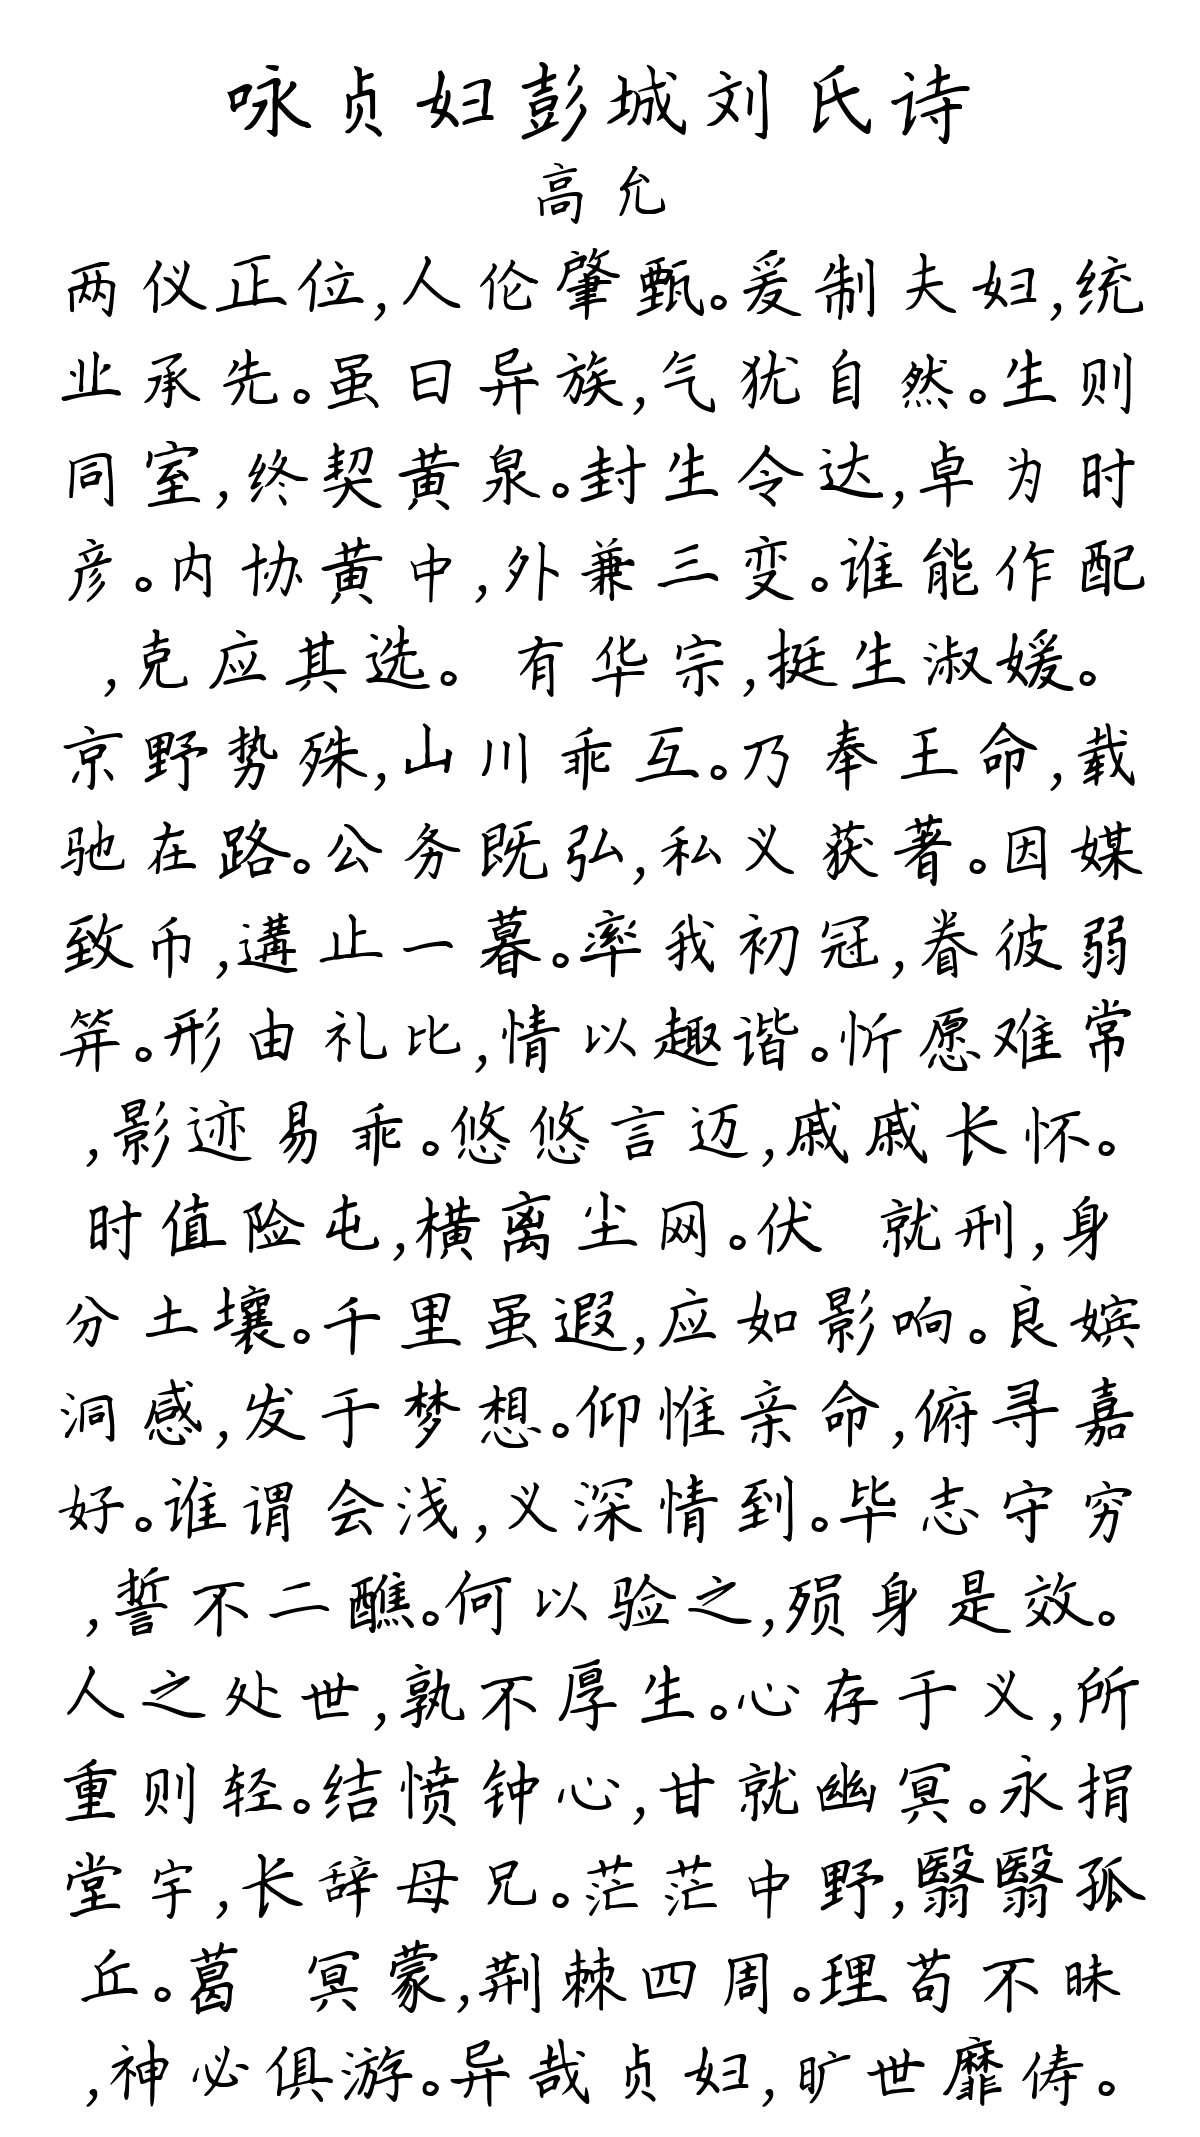 咏贞妇彭城刘氏诗
高允
两仪正位,人伦肇甄。爰制夫妇,统
业承先。虽曰异族,气犹自然。生则
同室,终契黄泉。封生令达,卓为时
彦。内协黄中,外兼三变。谁能作配
,克应其选。 有华宗,挺生淑媛。
京野势殊,山川乖互。乃奉王命,载
驰在路。公务既弘,私义获著。因媒
致币,遘止一暮。率我初冠,眷彼弱
笄。形由礼比,情以趣谐。忻愿难常
,影迹易乖。悠悠言迈,戚戚长怀。
时值险屯,横离尘网。伏 就刑,身
分土壤。千里虽遐,应如影响。良嫔
洞感,发于梦想。仰惟亲命,俯寻嘉
好。谁谓会浅,义深情到。毕志守穷
,誓不二醮。何以验之,殒身是效。
人之处世,孰不厚生。心存于义,所
重则轻。结愤钟心,甘就幽冥。永捐
堂宇,长辞母兄。茫茫中野,翳翳孤
丘。葛 冥蒙,荆棘四周。理苟不昧
,神必俱游。异哉贞妇,旷世靡俦。